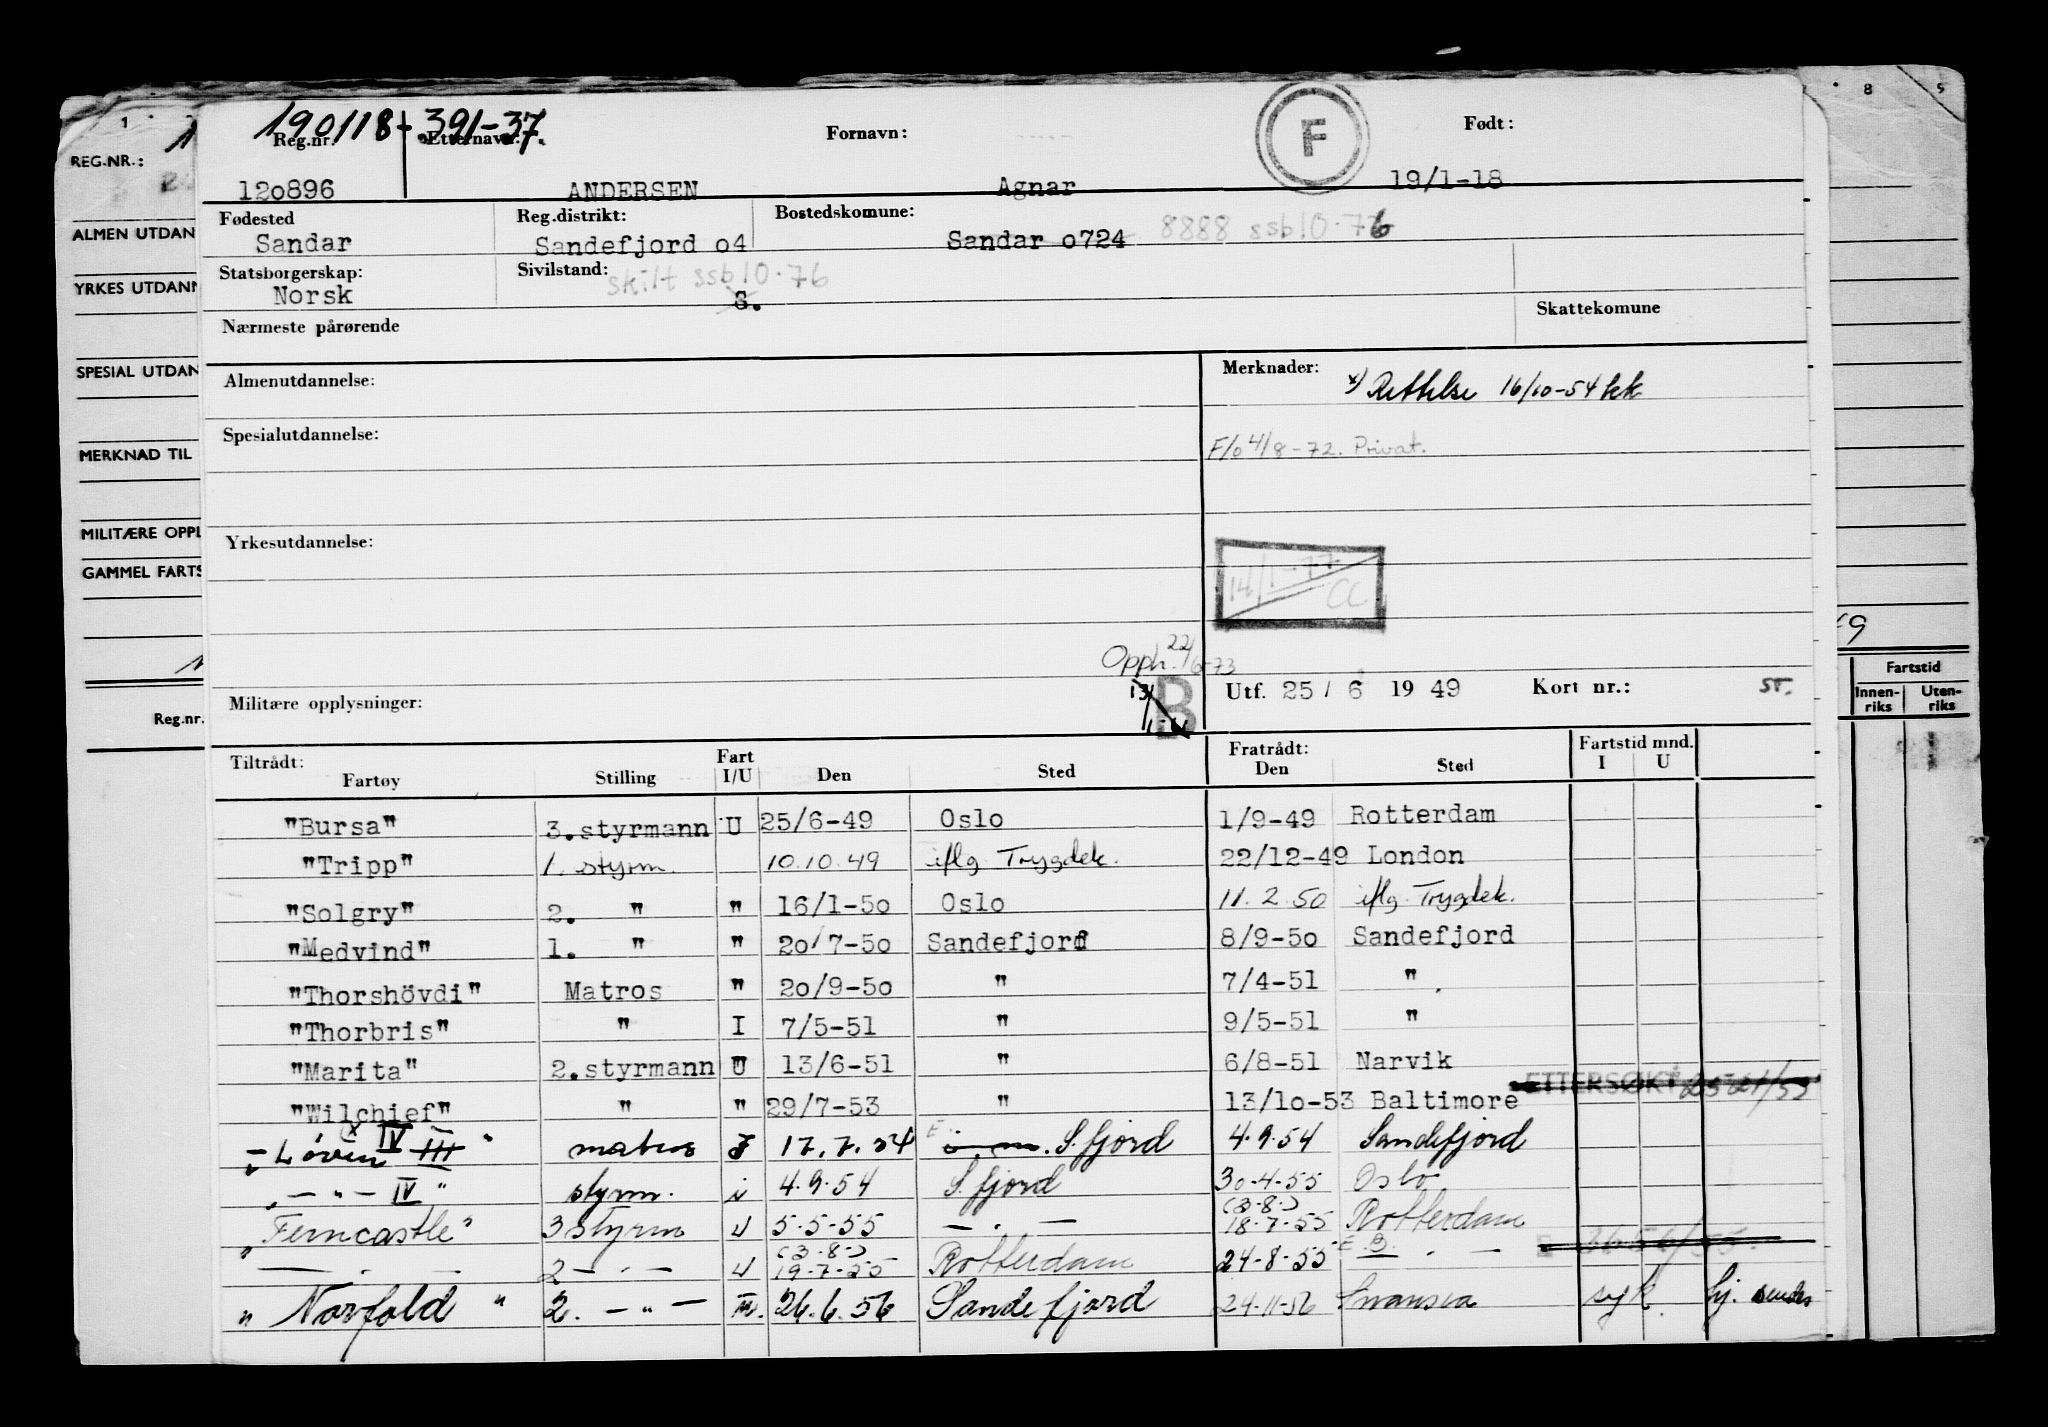 190118-391-37
1 8 9
REG.NR.: Reg.nr. Etternavn: Fornavn: F Født:
12o896 ANDERSEN Agnar 19/1-18
Fødested Reg.distrikt: Bostedskomune:
ALMEN UTDAN Sandar Sandefjord o4 Sandar o724 8888 ssb 10.76
Statsborgerskap: Sivilstand:
YRKES UTDANN Norsk skilt ssb 10.76
G.
Nærmeste pårørende Skattekomune
SPESIAL UTDAN Almenutdannelse: Merknader: x) Rettelse 16/10-54 kk
MERKNAD TIL Spesialutdannelse: F/o 4/8-72. Privat.
MILITÆRE OPPL Yrkesutdannelse:
GAMMEL FARTS 14/1-77 CC
Opph. 22/6-73
Militære opplysninger: B Utf. 25/6 1949 Kort nr.: ST.
Fartstid
Innenriks Utenriks
Reg.nr.
Tiltrådt: Fart Fratrådt: Fartstid mnd.
Fartøy Stilling I/U Den Sted Den Sted I U
"Bursa" 3.styrmann U 25/6-49 Oslo 1/9-49 Rotterdam
"Tripp" 1. styrm. 10.10.49 iflg. Trygdek. 22/12-49 London
"Solgry" 2. " " 16/1-5o Oslo 11.2.50 iflg. Trygdek.
"Medvind" 1. " " 2o/7-5o Sandefjord 8/9-5o Sandefjord
"Thorshövdi" Matros " 2o/9-5o " 7/4-51 "
"Thorbris" " I 7/5-51 " 9/5-51 "
"Marita" 2.styrmann U 13/6-51 " 6/8-51 Narvik
ETTERSØKT
"Wilchief" " " 29/7-53 " 13/1o-53 Baltimore
"Løven IV III" x matros 17.7.54 S.fjord 4.9.54 Sandefjord
" — " — IV " styrm. i 4.9.54 S.fjord 30-4-55 Oslo
"Ferncastle" 3 styrm U 5-5-55 — . — (3-8-) 18-7-55 Rotterdam
— . — 2 — . — U (3-8-) 19-7-55 Rotterdam 24-8-55 E B. — . — 3656/55.
" Norfold " 2. — " — 26.6.56 Sandefjord 24-11-56 Swansea syk hj. sendes